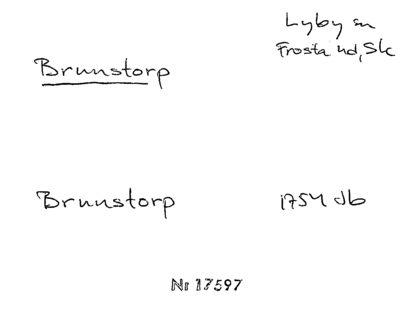 Lyby sn
Frosta hd, Sk
Brunstorp
Brunstorp 1754 db
Nr 17597